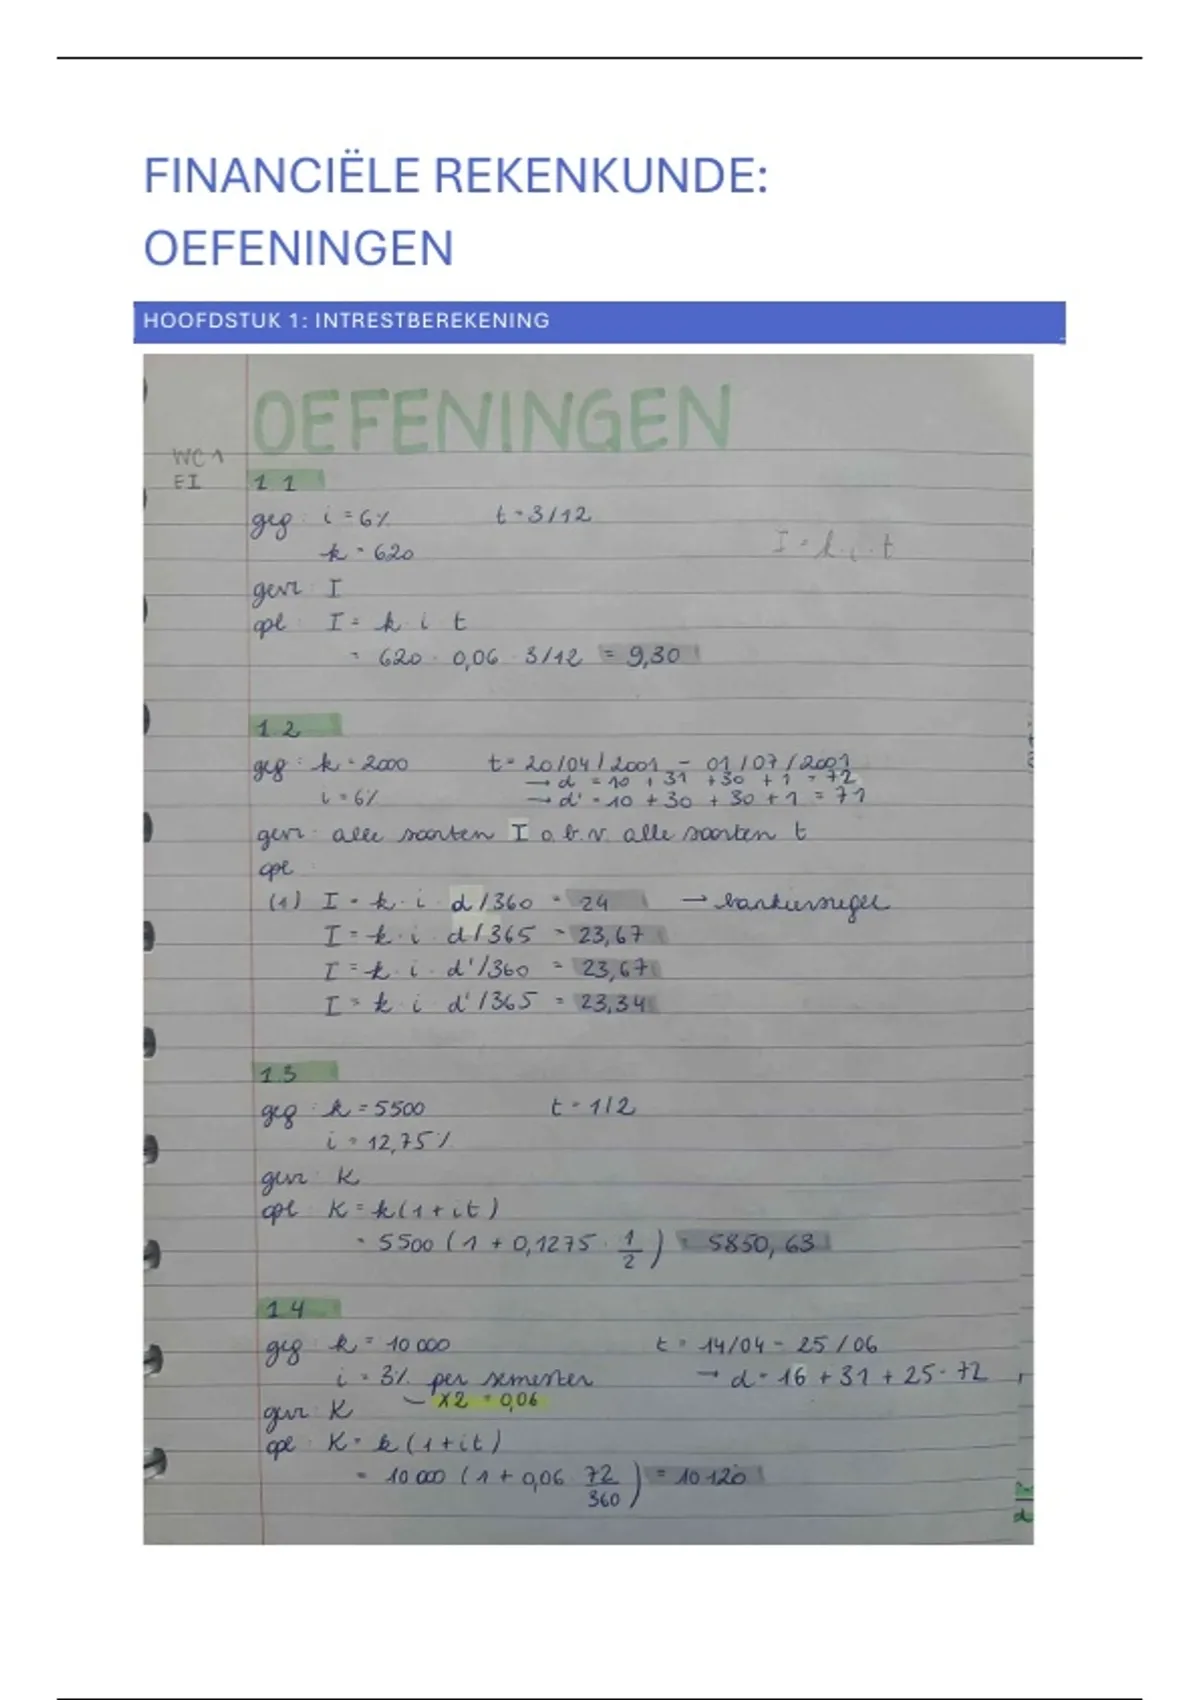 FINANCIËLE REKENKUNDE:
OEFENINGEN
HOOFDSTUK 1: INTRESTBEREKENING
OEFENINGEN
WC 1
EI
1.1
geg: i = 6% t = 3/12
k = 620
I = k.i.t
gevr: I
opl: I = k.i.t
= 620 . 0,06 . 3/12 = 9,30
1.2
geg: k = 2000 t = 20/04/2001 - 01/07/2001
→ d = 10 + 31 + 30 + 1 = 72
i = 6% → d' = 10 + 30 + 30 + 1 = 71
gevr: alle soorten I o.b.v. alle soorten t
opl:
(1) I = k.i.d/360 = 24 → bankiersregel
I = k.i.d/365 = 23,67
I = k.i.d'/360 = 23,67
I = k.i.d'/365 = 23,34
1.3
geg: k = 5500 t = 1/2
i = 12,75%
gevr: K
opl: K = k(1+it)
= 5500 (1 + 0,1275 . 1/2) = 5850,63
1.4
geg: k = 10 000 t = 14/04 - 25/06
i = 3% per semester → d = 16 + 31 + 25 = 72
x2 = 0,06
gevr: K
opl: K = k(1+it)
= 10 000 (1 + 0,06 . 72/360) = 10 120